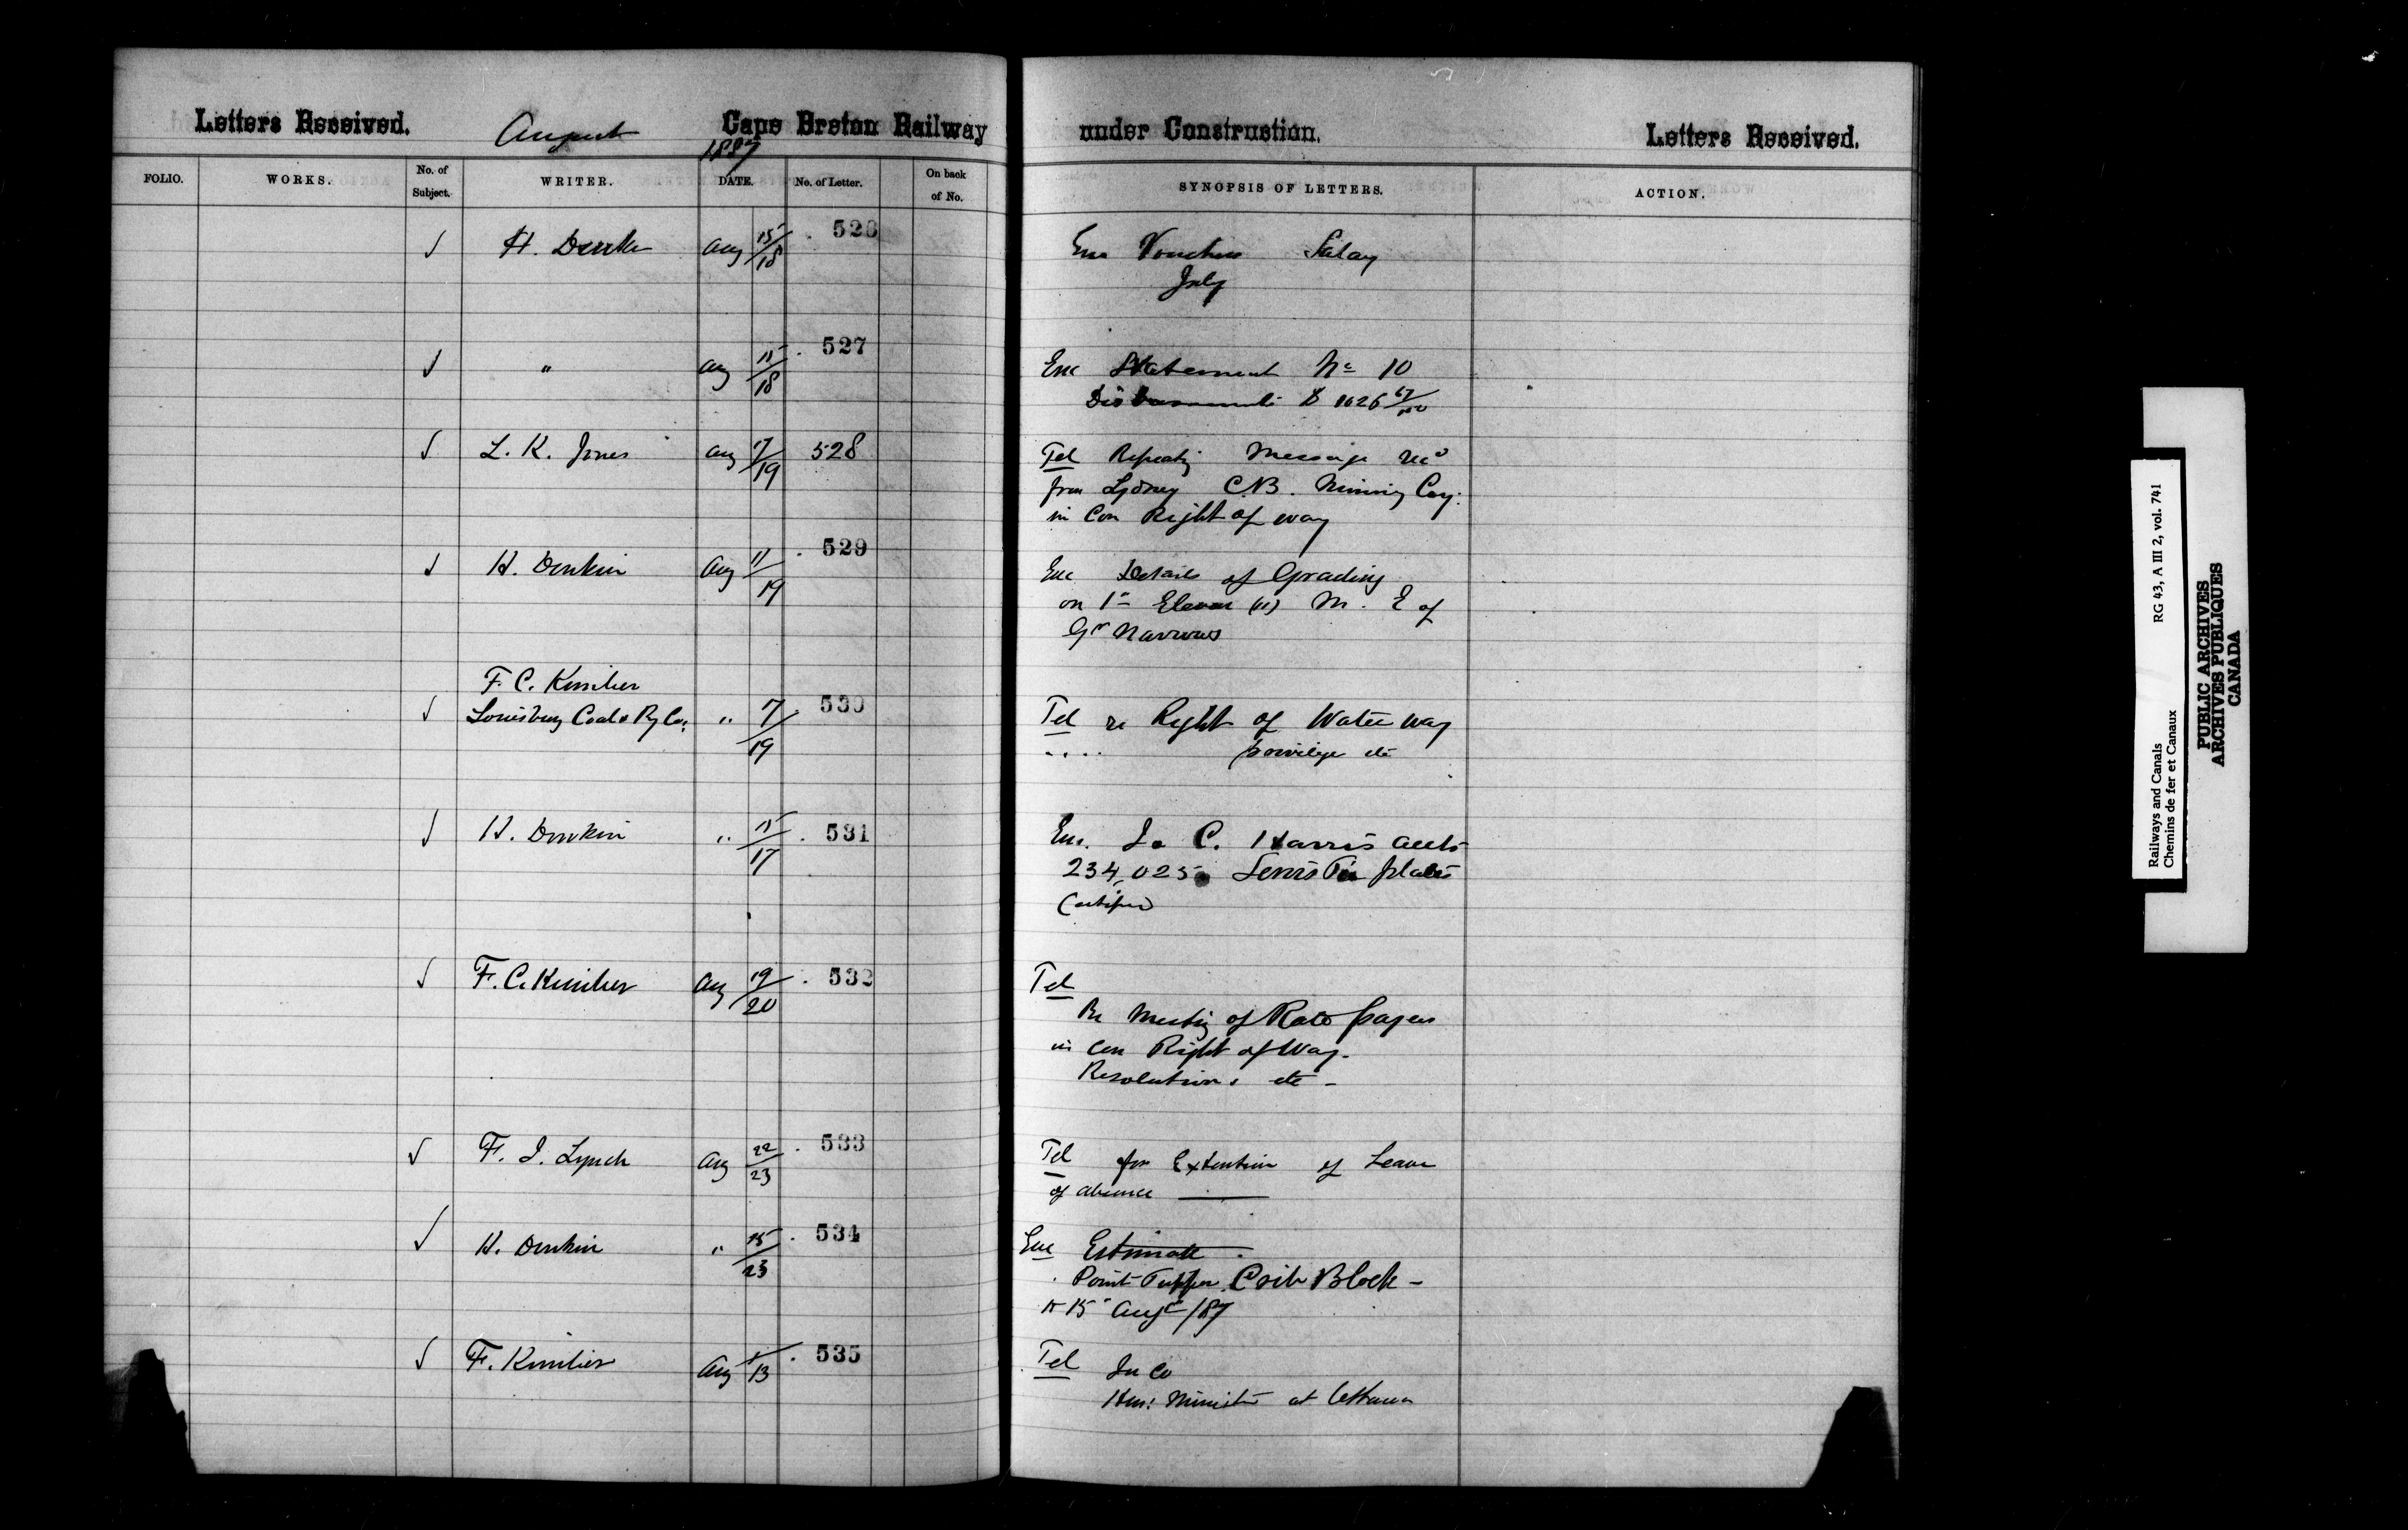 Letters Received. August Cape Breton Railway under Construction. Letters Received.
1887
FOLIO. WORKS. No. of Subject. WRITER. DATE. No. of Letter. On back of No. SYNOPSIS OF LETTERS. ACTION.
√ H. Donkin Aug 15/18 526 Enc Vouchers Salary
July
√ " Aug 15/18 527 Enc Statement No 10
Disbursements $ 1026 67/100
√ L. K. Jones Aug 17/19 528 Tel Repeating Message recd
from Sydney C.B. Mining Coy.
in Con Right of way
√ H. Donkin Aug 11/19 529 Enc Details of Grading
on 1st Eleven (11) M. E of
Gr Narrows
F. C. Kimber
√ Louisburg Coal & Ry Co. " 17/19 530 Tel re Right of Water way
privilege etc
√ H. Donkin " 15/17 531 Enc. C. Harris accts
234, 025 plates
Certified
√ F. C. Kimber Aug 19/20 532 Tel
Re Meeting of Rate payers
in Con Right of Way.
Resolutions etc -
√ F. J. Lynch Aug 22/23 533 Tel for Extention of Leave
of absence
√ H. Donkin " 15/23 534 Enc Estimate.
Point Tupper Crib Block -
to 15 Augt /87
√ F. Kimber Aug /13 535 Tel
Hon: Minister at Ottawa
Railways and Canals RG 43, A III 2, vol. 741
Chemins de fer et Canaux
PUBLIC ARCHIVES
ARCHIVES PUBLIQUES
CANADA